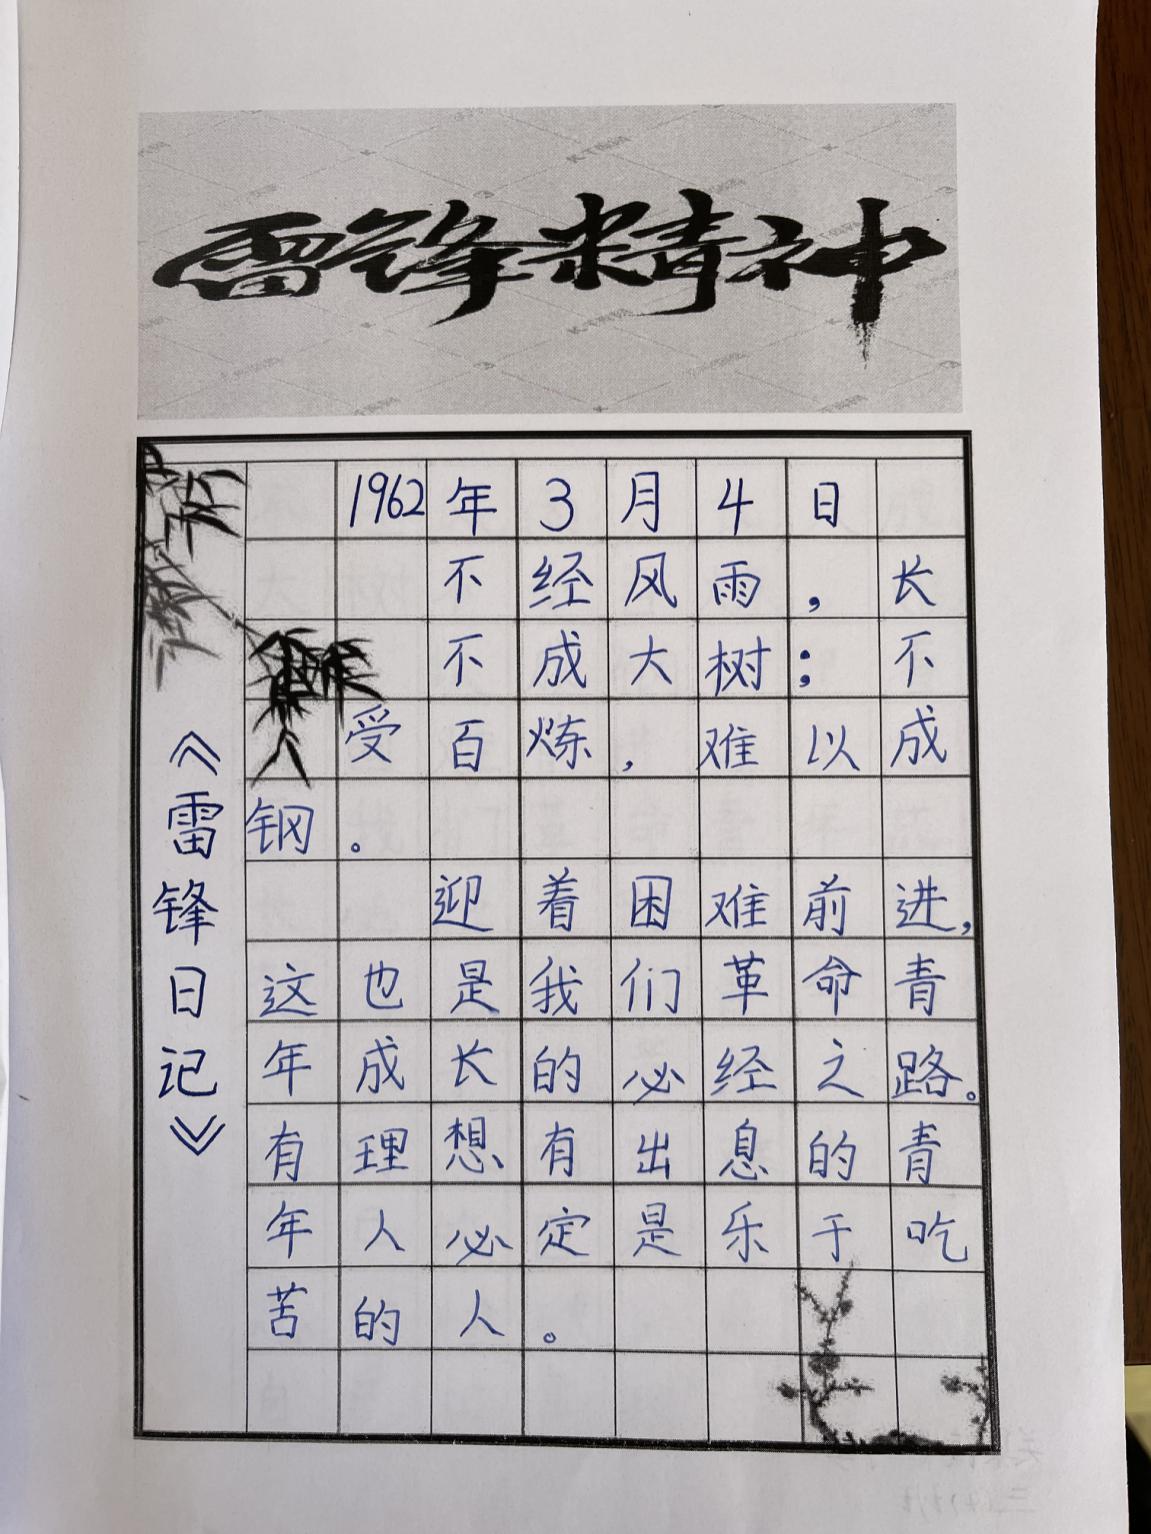 雷锋精神
《雷锋日记》
1962年3月4日
不经风雨，长
不成大树；不
受百炼，难以成
钢。
迎着困难前进，
这也是我们革命青
年成长的必经之路。
有理想有出息的青
年人必定是乐于吃
苦的人。